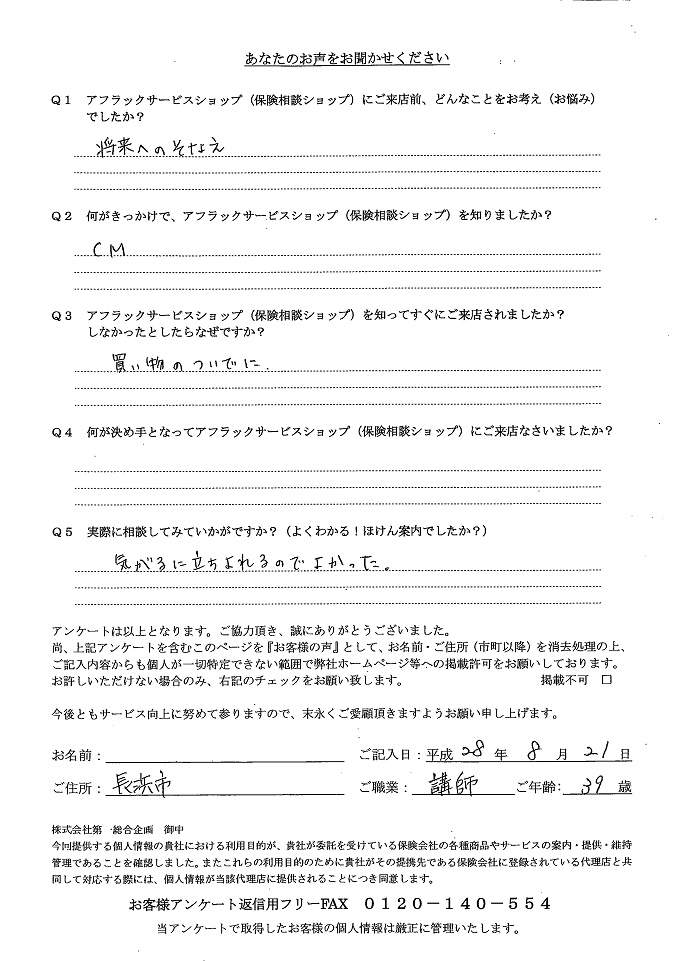 あなたのお声をお聞かせください
Q1 アフラックサービスショップ（保険相談ショップ）にご来店前、どんなことをお考え（お悩み）
でしたか？
将来へのそなえ
Q2 何がきっかけで、アフラックサービスショップ（保険相談ショップ）を知りましたか？
CM
Q3 アフラックサービスショップ（保険相談ショップ）を知ってすぐにご来店されましたか？
しなかったとしたらなぜですか？
買い物のついでに.
Q4 何が決め手となってアフラックサービスショップ（保険相談ショップ）にご来店なさいましたか？
Q5 実際に相談してみていかがですか？（よくわかる！ほけん案内でしたか？）
気がるに立ちよれるのでよかった。
アンケートは以上となります。ご協力頂き、誠にありがとうございました。
尚、上記アンケートを含むこのページを『お客様の声』として、お名前・ご住所（市町以降）を消去処理の上、
ご記入内容からも個人が一切特定できない範囲で弊社ホームページ等への掲載許可をお願いしております。
お許しいただけない場合のみ、右記のチェックをお願い致します。 掲載不可 □
今後ともサービス向上に努めて参りますので、末永くご愛顧頂きますようお願い申し上げます。
お名前： ご記入日：平成 28 年 8 月 21 日
ご住所： 長浜市 ご職業： 講師 ご年齢： 39 歳
株式会社第一総合企画 御中
今回提供する個人情報の貴社における利用目的が、貴社が委託を受けている保険会社の各種商品やサービスの案内・提供・維持
管理であることを確認しました。またこれらの利用目的のために貴社がその提携先である保険会社に登録されている代理店と共
同して対応する際には、個人情報が当該代理店に提供されることにつき同意します。
お客様アンケート返信用フリーFAX 0120－140－554
当アンケートで取得したお客様の個人情報は厳正に管理いたします。